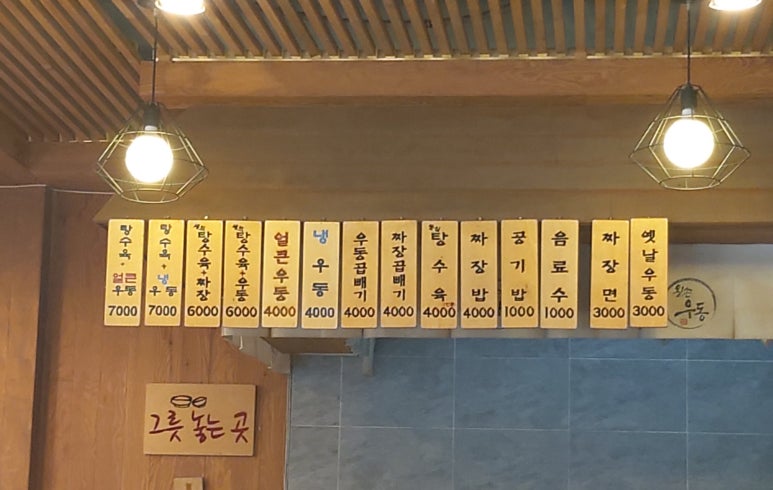 탕수육+얼큰우동 7000
탕수육+냉우동 7000
탕수육+짜장 6000
탕수육+우동 6000
얼큰우동 4000
냉우동 4000
우동곱빼기 4000
짜장곱빼기 4000
탕수육 4000
짜장밥 4000
공기밥 1000
음료수 1000
짜장면 3000
옛날우동 3000
우동
그릇 놓는 곳